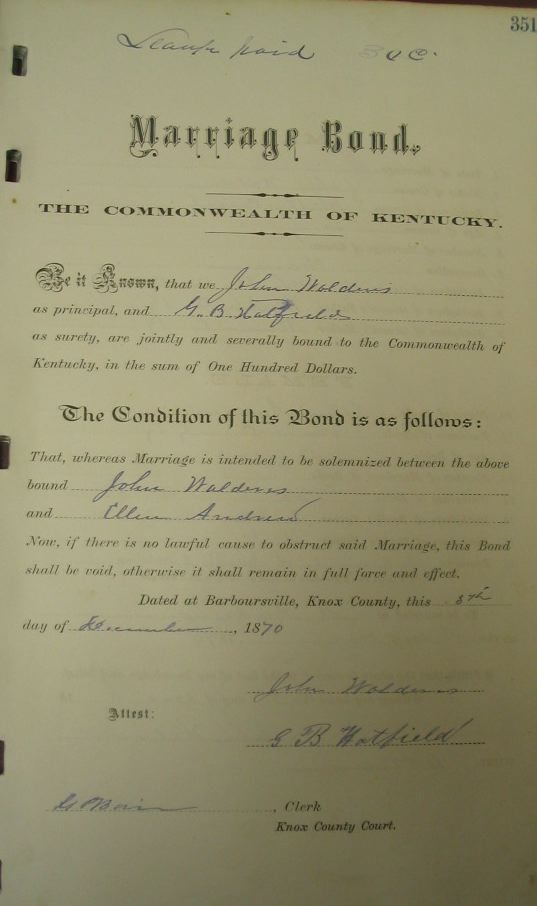 351
paid 50 c.
Marriage Bond.
THE COMMONWEALTH OF KENTUCKY.
Be it Known, that we John Waldens
as principal, and G. B. Hatfield
as surety, are jointly and severally bound to the Commonwealth of
Kentucky, in the sum of One Hundred Dollars.
The Condition of this Bond is as follows:
That, whereas Marriage is intended to be solemnized between the above
bound John Waldens
and Ellen
Now, if there is no lawful cause to obstruct said Marriage, this Bond
shall be void, otherwise it shall remain in full force and effect.
Dated at Barboursville, Knox County, this 8th
day of December, 1870
John Waldens
Attest:
G B Hatfield
, Clerk
Knox County Court.